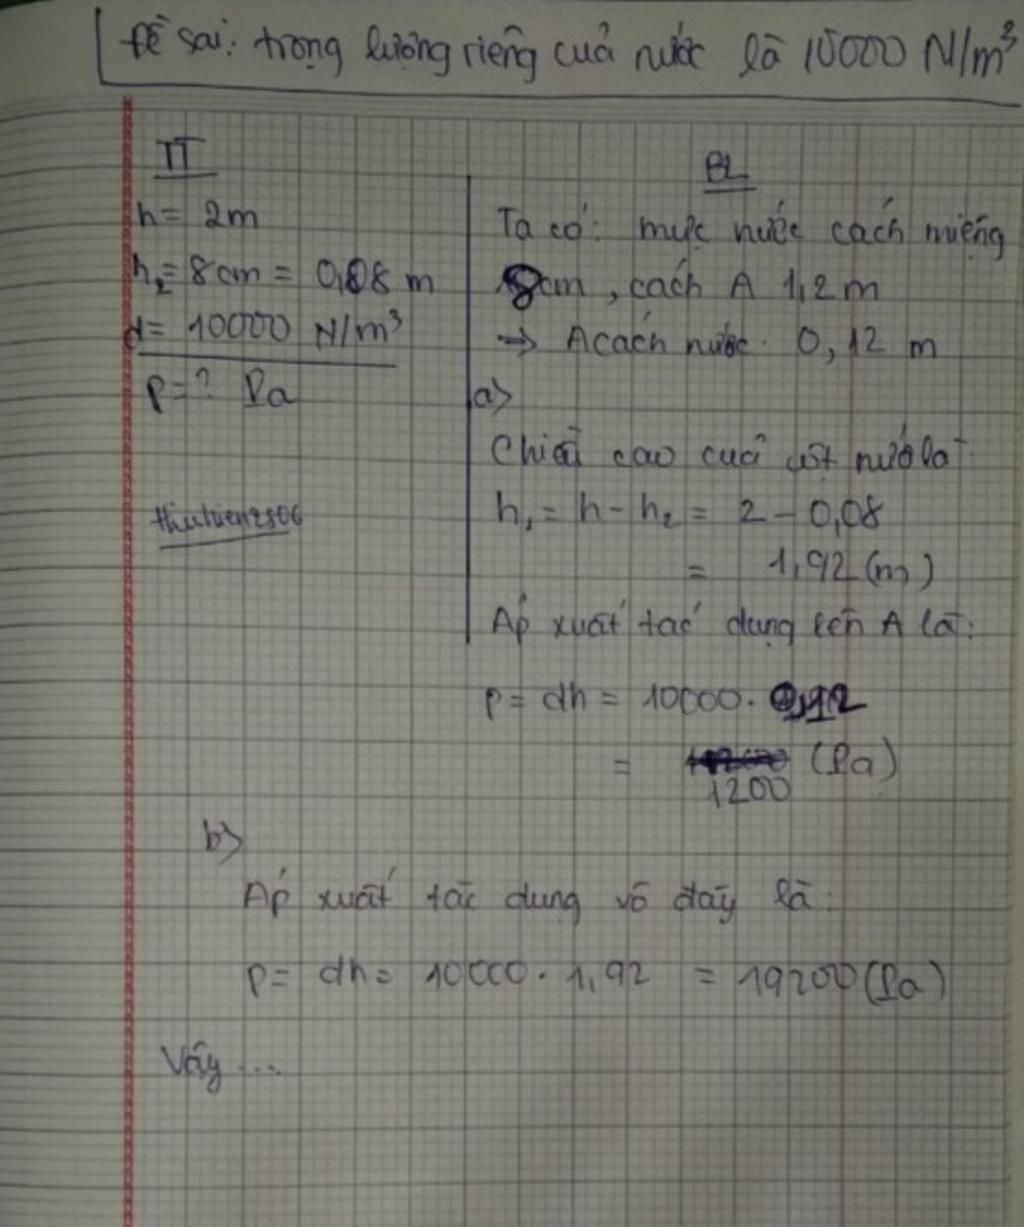 Đề sai: trọng lượng riêng của nước là 10000 N/m³
TT
h = 2m
h₂ = 8cm = 0,08 m
d = 10000 N/m³
p = ? Pa
BL
Ta có: mực nước cách miệng
8cm, cách A 1,2m
→ A cách nước 0,12 m
a>
Chiều cao của cột nước là
h₁ = h - h₂ = 2 - 0,08
= 1,92 (m)
Áp xuất tác dụng lên A là:
p = dh = 10000. 0,12
= 1200 (Pa)
b>
Áp xuất tác dụng vô đáy là:
p = dh = 10000. 1,92 = 19200 (Pa)
Vậy ...